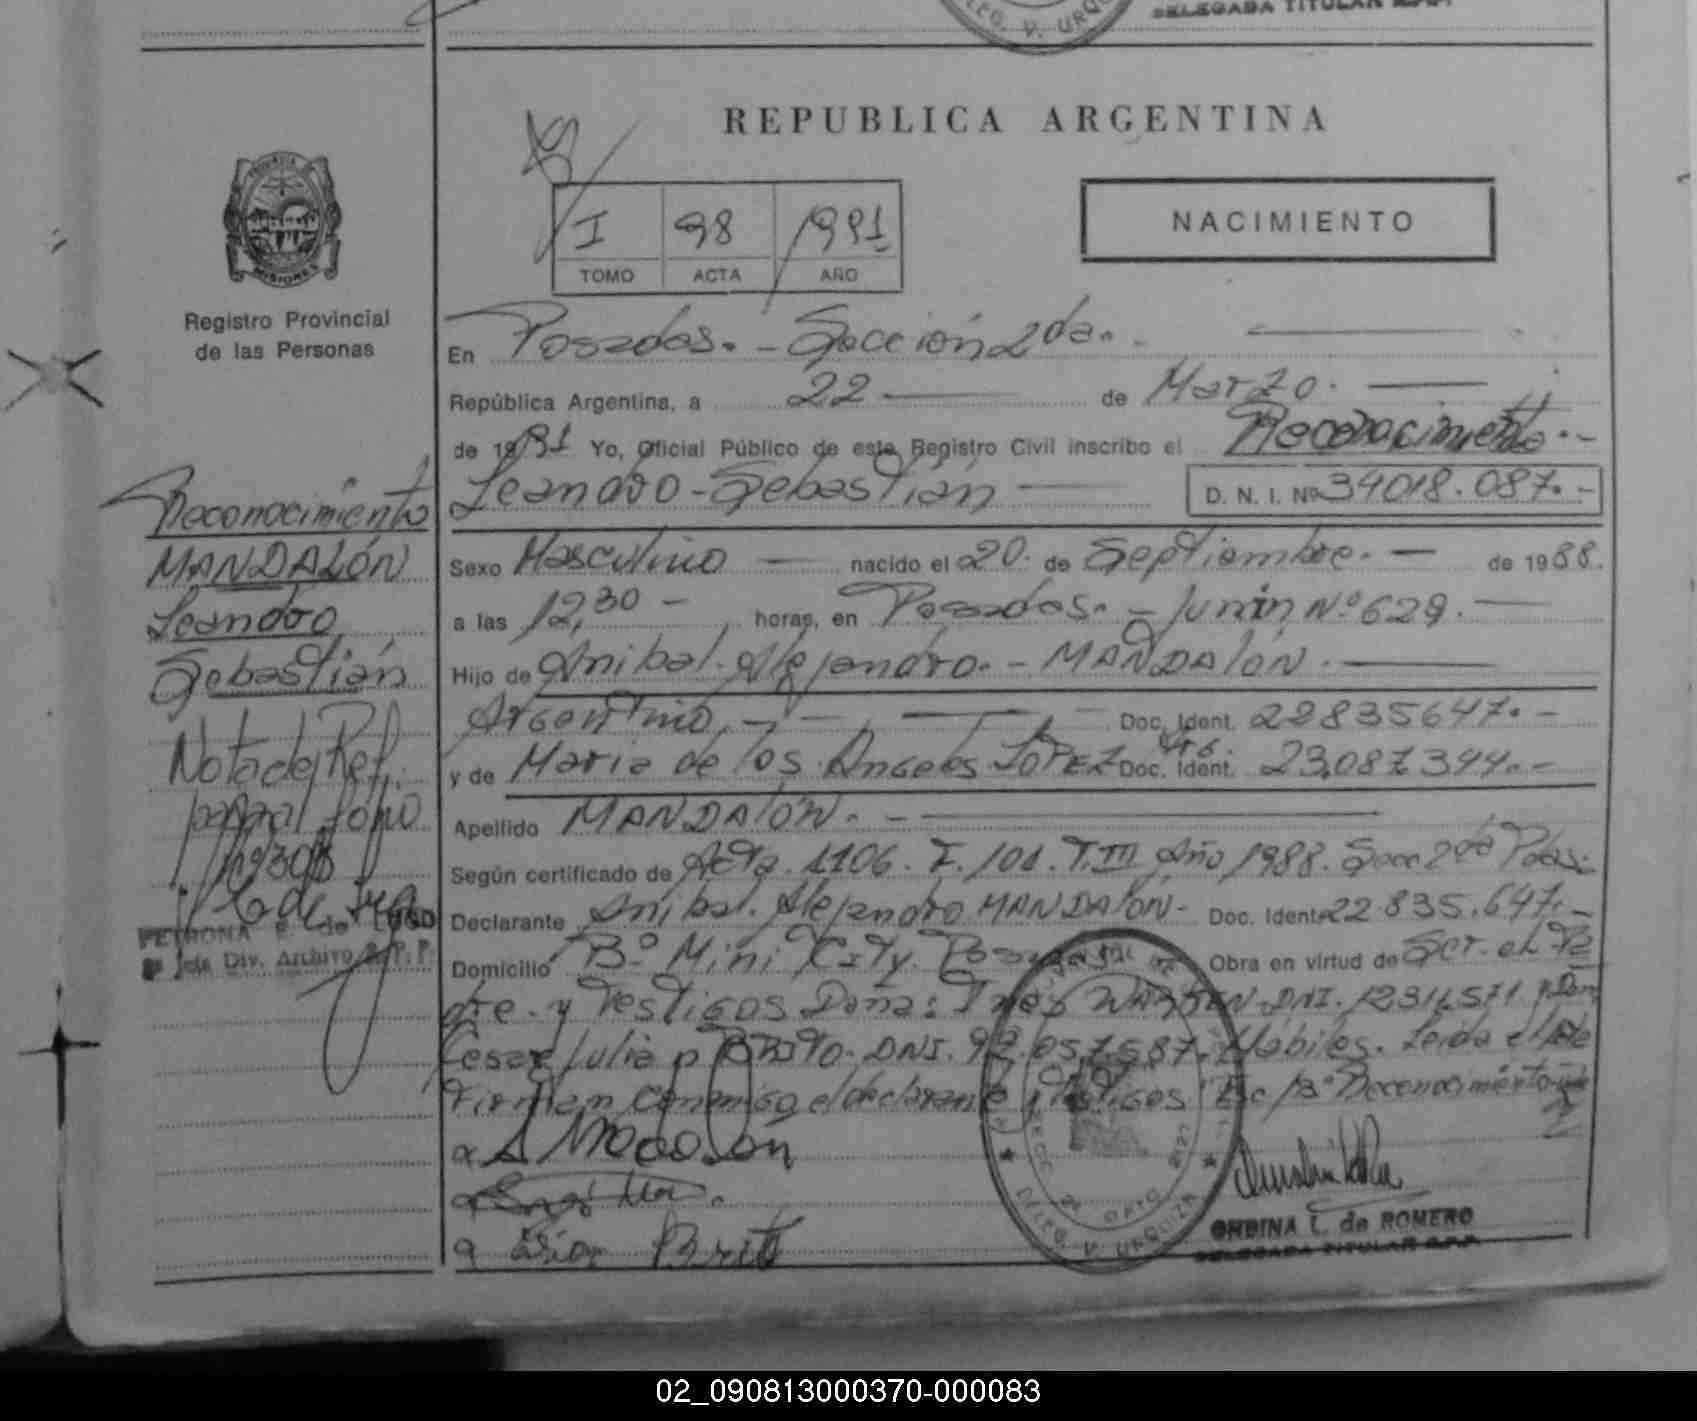 DELEG. V. URQU
DELEGADA TITULAR R.P.P.
REPUBLICA ARGENTINA
I 98 1991
TOMO ACTA AÑO
NACIMIENTO
MISIONES
Registro Provincial
de las Personas
En Posadas.- Sección 2da.-
República Argentina, a 22 de Marzo.
de 1991 Yo, Oficial Público de este Registro Civil inscribo el Reconocimiento.-
Leandro-Sebastián D. N. I. Nº 34018.087.-
Reconocimiento
MANDALÓN
Leandro
Sebastián
Nota de Ref.
PETRONA E. de LUGO
Jefa Div. Archivo R.P.P.
Sexo Masculino nacido el 20. de Septiembre. de 1988.
a las 12,30 - horas, en Posadas.- Junín Nº 629.
Hijo de Anibal. Alejandro.- MANDALÓN.
Argentino,- Doc. Ident. 22835647.-
y de Maria de los Angeles LÓPEZ Arg. Doc. Ident. 23.087.344.-
Apellido MANDALÓN.-
Según certificado de Acta. 1106. F. 101. T.III Año 1988. Secc 2da Pdas.
Declarante Anibal. Alejandro MANDALÓN- Doc. Ident. 22.835.647.-
Domicilio Bº Mini City. Posadas Obra en virtud de Ser. el Pa
dre. y Testigos Doña: Ines DNI. y Don
Cesar Julio BRITO. DNI. Hábiles. Leida el Acta
Firman conmigo el declarante y testigos Reconocimiento
A Mandalón
Brito
DELEG. V. URQUIZA
ORBINA L. de ROMERO
DELEGADA TITULAR R.P.P.
02_090813000370-000083